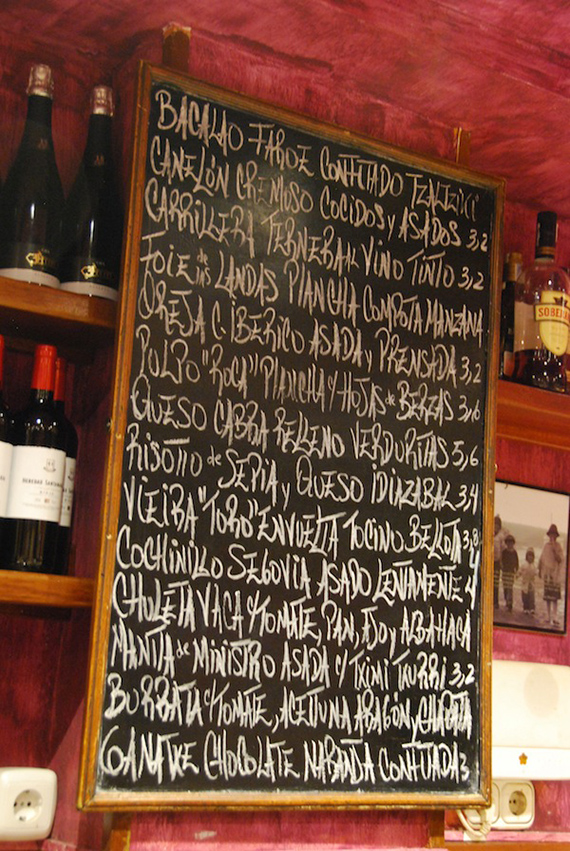 BACALAO FAROE CONFITADO TZATZIKI
CANELÓN CREMOSO COCIDOS y ASADOS 3,2
CARRILLERA TERNERA AL VINO TINTO 3,2
FOIE de las LANDAS PLANCHA COMPOTA MANZANA
OREJA C. IBERICO ASADA y PRENSADA 3,2
PULPO "ROCA" PLANCHA y HOJAS de BERZAS 3,6
QUESO CABRA RELLENO VERDURITAS 3,6
RISOTTO de SEPIA y QUESO IDIAZABAL 3,4
VIEIRA "TORO" ENVUELTA TOCINO BELLOTA 3,8
COCHINILLO SEGOVIA ASADO LENTAMENTE 4
CHULETA VACA C/ TOMATE, PAN, AJO y ALBAHACA
MANITA de MINISTRO ASADA C/ TXIMI TXURRI 3,2
BURRATA C/ TOMATE, ACEITUNA ARAGÓN,
GANACHE CHOCOLATE NARANJA CONFITADA 3
SOBER